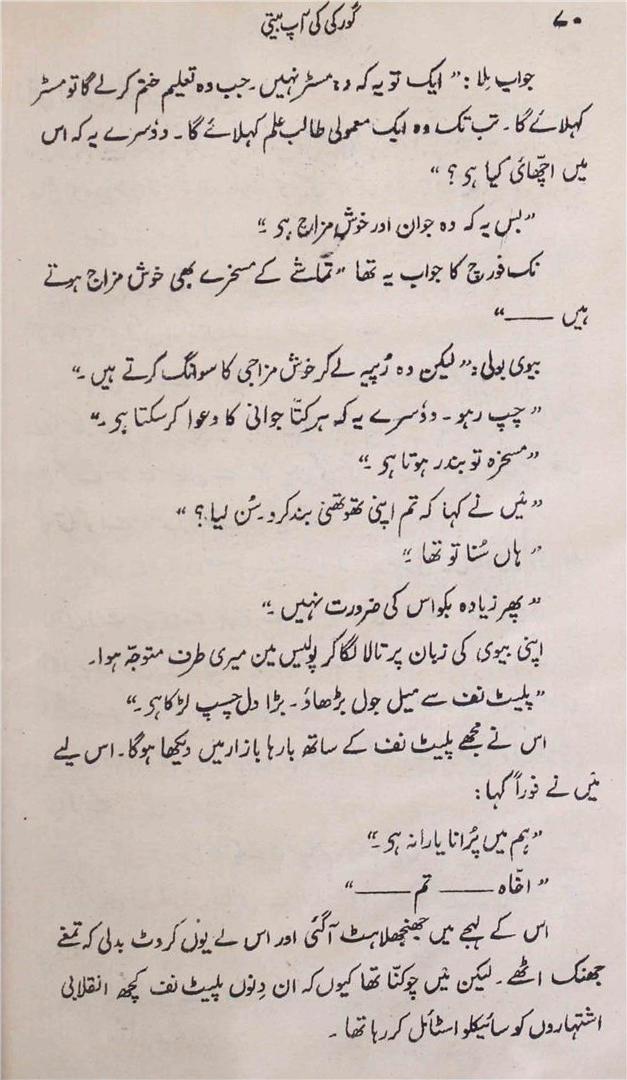 ۷۰
گورکی کی آپ بیتی
جواب ملا: ”ایک تو یہ کہ وہ مسٹر نہیں۔ جب وہ تعلیم ختم کرلے گا تو مسٹر
کہلائے گا۔ تب تک وہ ایک معمولی طالب علم کہلائے گا۔ دوٗسرے یہ کہ اس
میں اچھائی کیا ہی؟“
”بس یہ کہ وہ جوان اور خوش مزاج ہی۔“
نک فورچ کا جواب یہ تھا ”تماشے کے مسخرے بھی خوش مزاج ہوتے
ہیں ——“
بیوی بولی: ”لیکن وہ رُپیہ لے کر خوش مزاجی کا سوانگ کرتے ہیں۔“
”چپ رہو۔ دوٗسرے یہ کہ ہر کتّا جوانی کا دعوا کرسکتا ہی۔“
”مسخرہ تو بندر ہوتا ہی۔“
”مَیں نے کہا کہ تم اپنی تھوتھنی بند کرو۔ سُن لیا؟“
”ہاں سُنا تو تھا۔“
”پھر زیادہ بکواس کی ضرورت نہیں۔“
اپنی بیوی کی زبان پر تالا لگا کر پولیس مین میری طرف متوجّہ ہوا۔
”پلیٹ نف سے میل جول بڑھاؤ۔ بڑا دل چسپ لڑکا ہی۔“
اس نے مجھے پلیٹ نف کے ساتھ بارہا بازار میں دیکھا ہوگا۔ اس لیے
مَیں نے فوراً کہا:
”ہم میں پُرانا یارانہ ہی۔“
”اخّاہ —— تم ——“
اس کے لہجے میں جھنجھلاہٹ آگئی اور اس نے یوٗں کروٹ بدلی کہ تمغے
جھنک اٹھے۔ لیکن مَیں چوکنّا تھا کیوں کہ ان دِنوں پلیٹ نف کچھ انقلابی
اشتہاروں کو سائیکلو اسٹائل کر رہا تھا۔